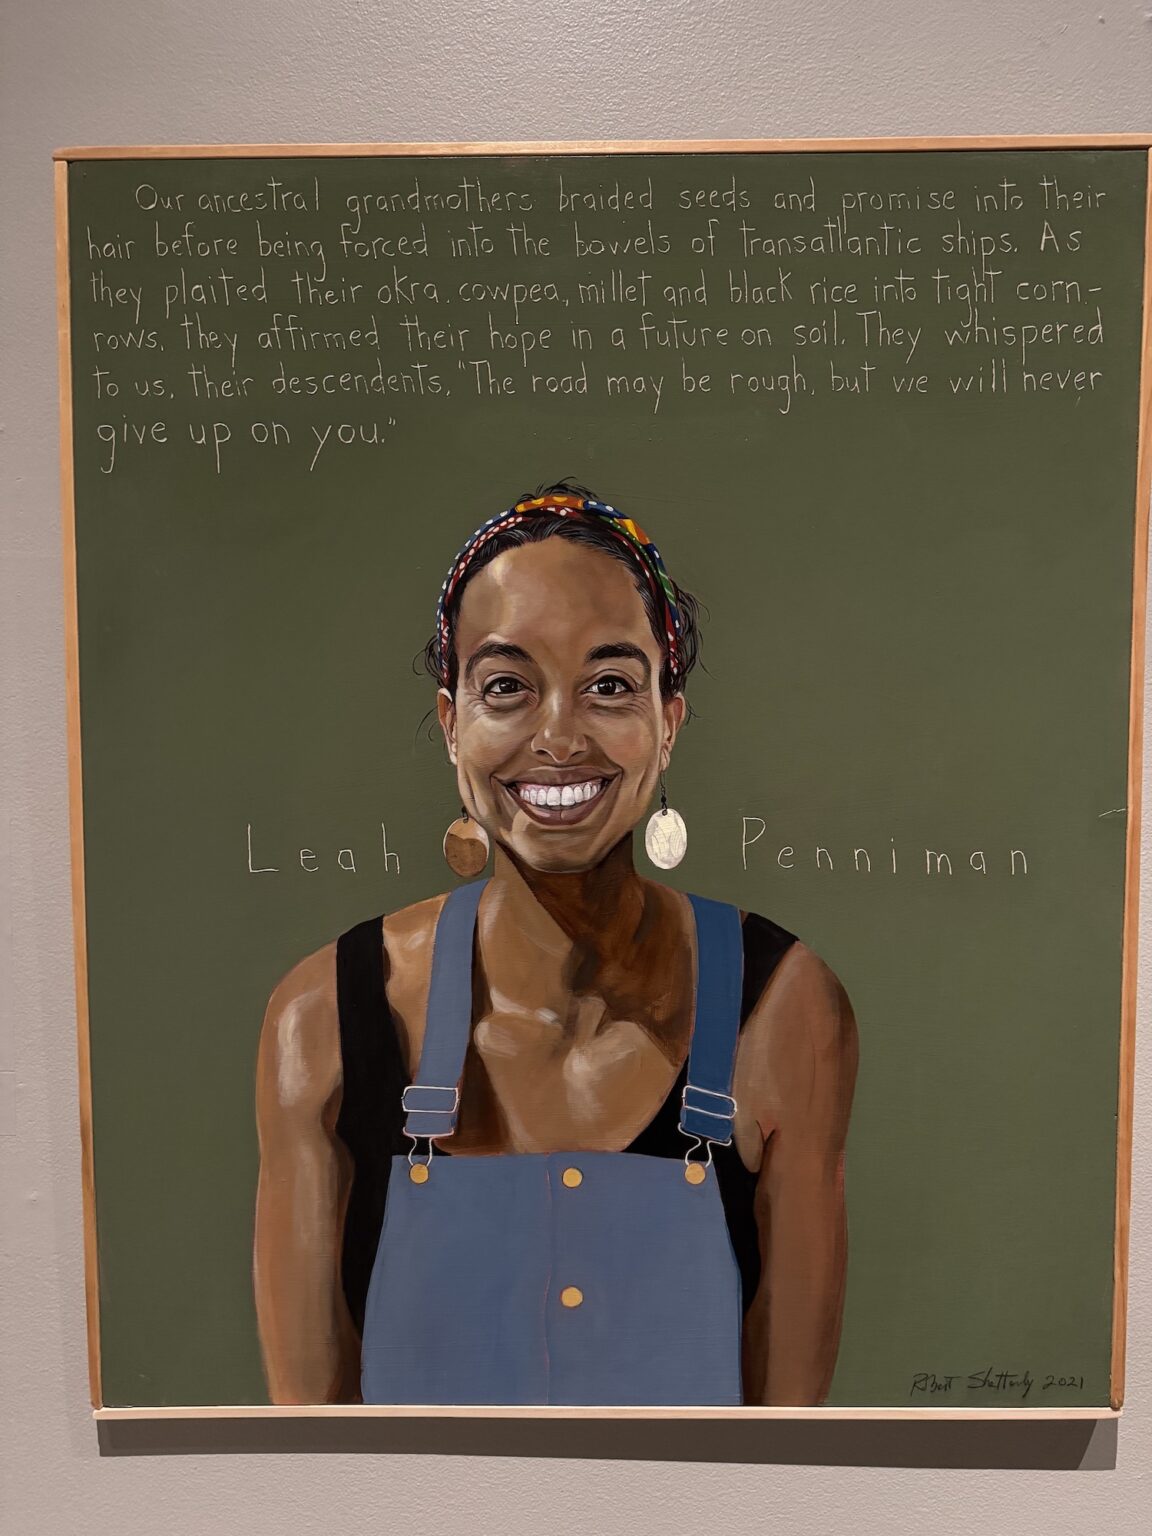 Our ancestral grandmothers braided seeds and promise into their
hair before being forced into the bowels of transatlantic ships. As
they plaited their okra, cowpea, millet and black rice into tight corn-
rows, they affirmed their hope in a future on soil. They whispered
to us, their descendents, "The road may be rough, but we will never
give up on you."
Leah Penniman
Robert Shetterly 2021